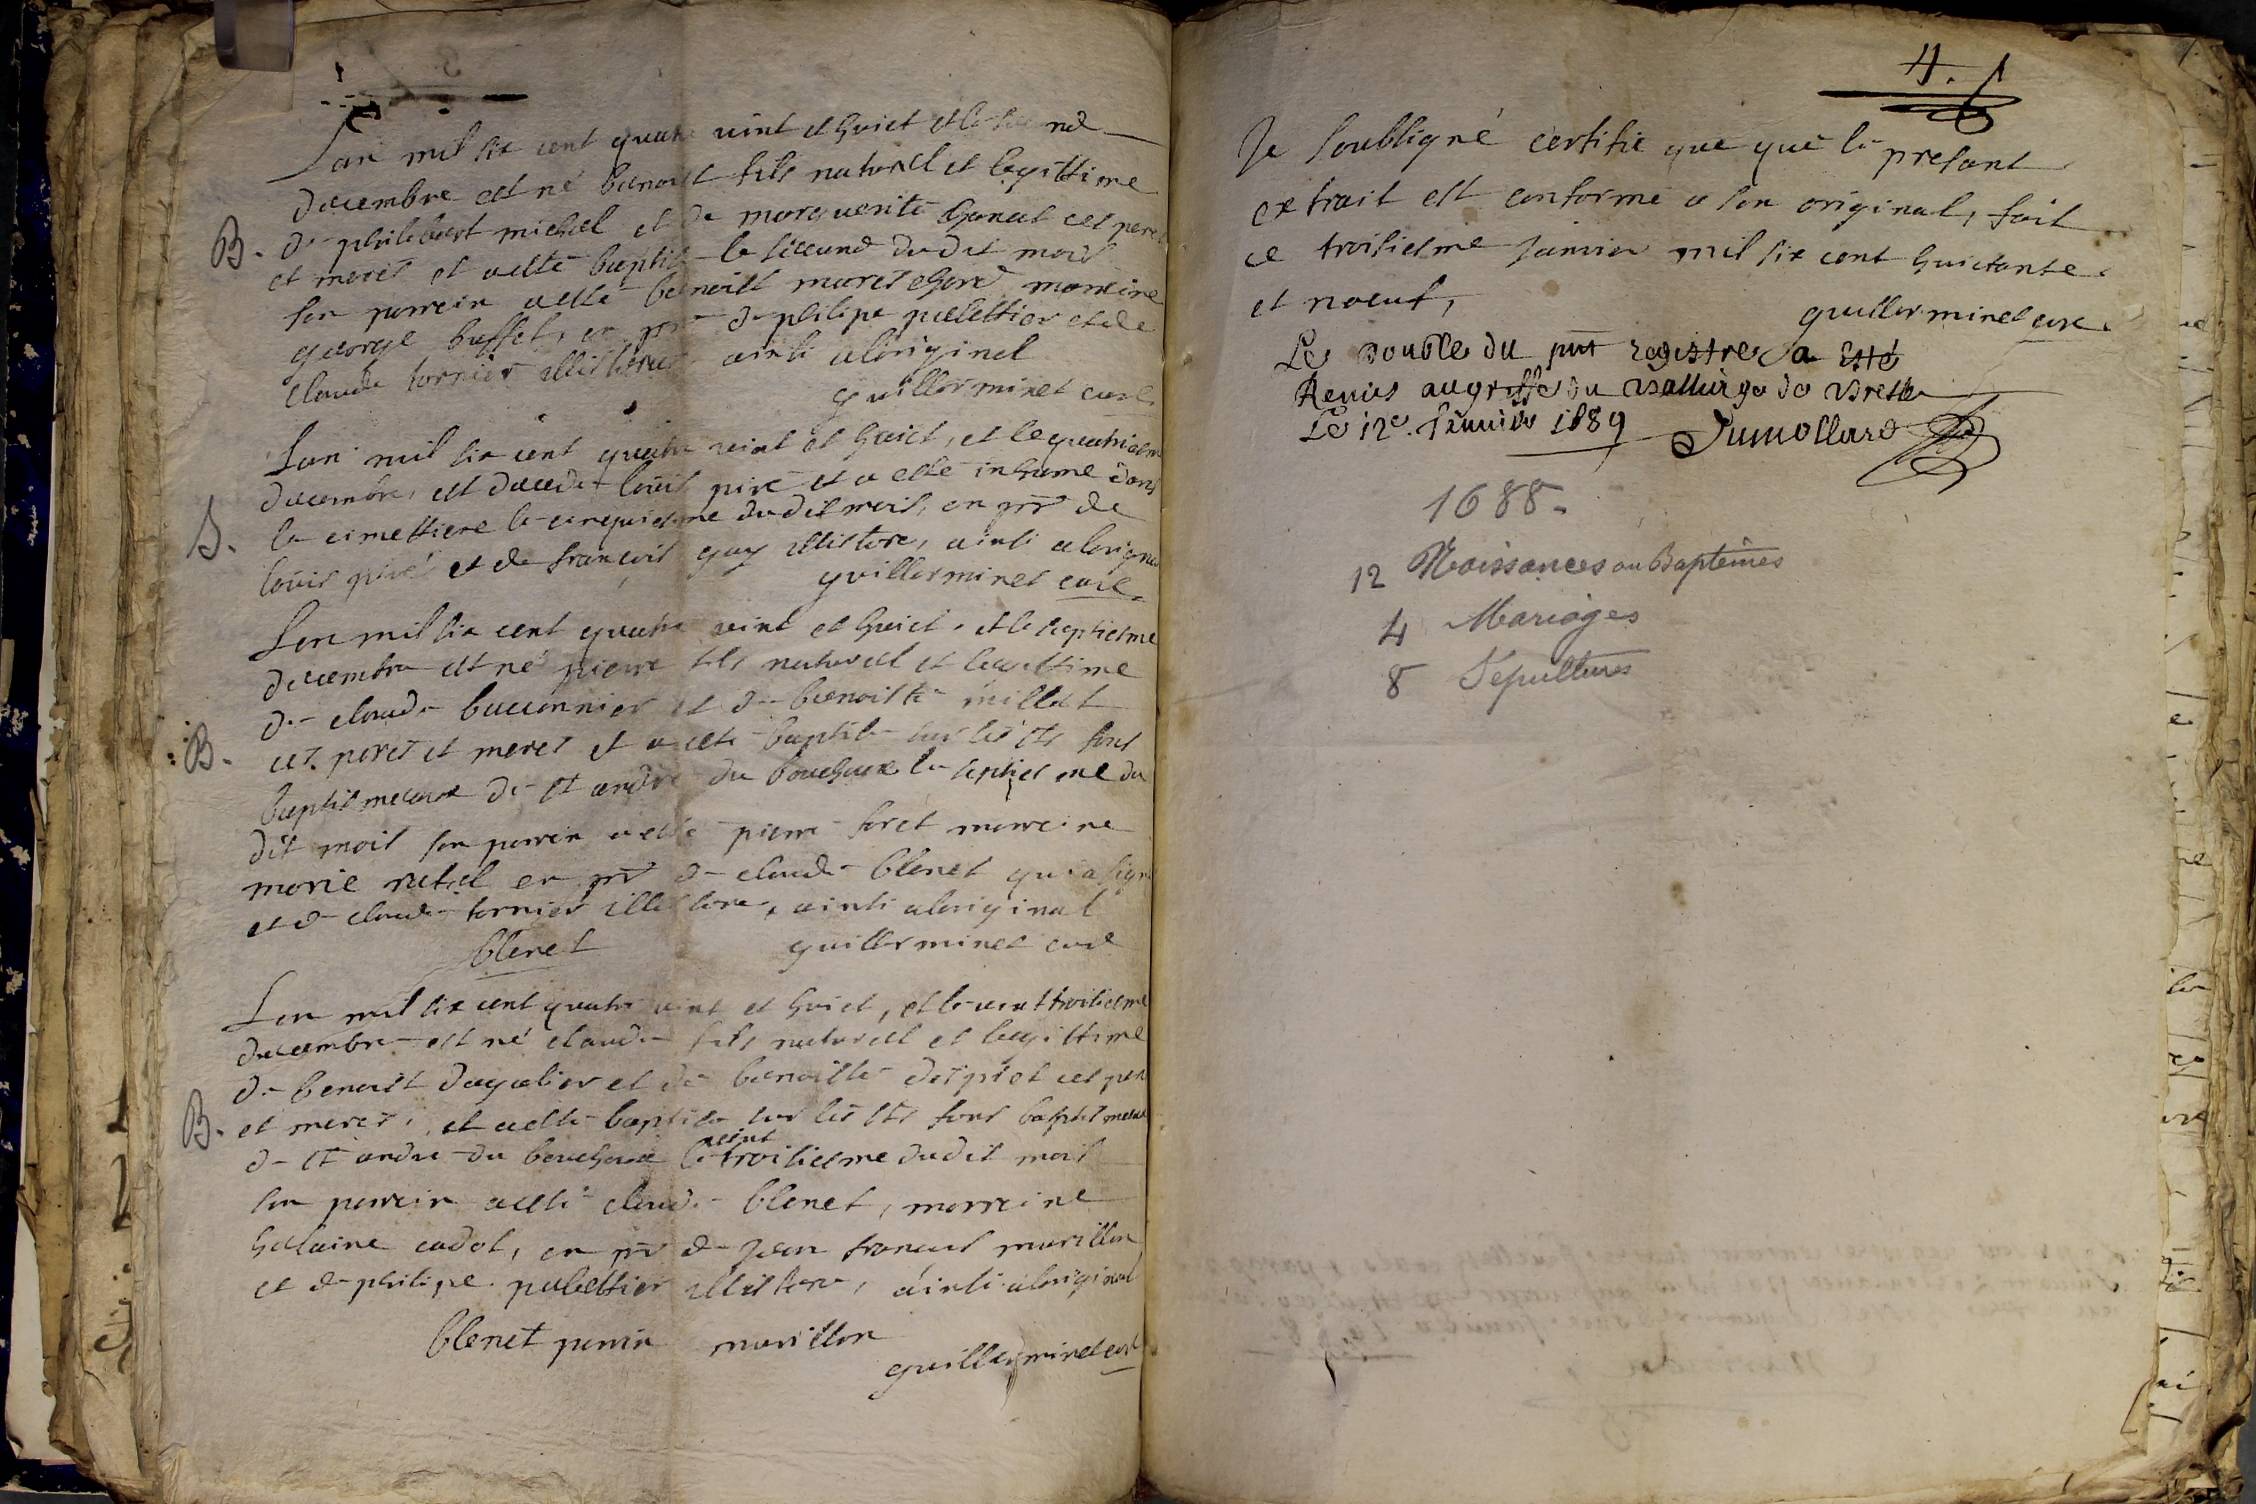 Lan mil six cent quatre vint et huict et le second
decembre est né benoist fils naturel et legittime
B. de philibert michel et de marguerite ces peres
et meres et a esté baptisé le second dudit mois
son parrein a esté benoist mareschard marreine
george buffet, en pnt de philipe pelettier et de
claude tornier illisteres ainsi a loriginel
guillerminet curé
Lan mil six cent quatre vint et huict, et le quatriesme
decembre, est decedé louis piré et a esté inhume dans
S. la cimettiere le cinquiesme dudit mois, en pnt de
louis piré et de françois guy illistere, ainsi a loriginal
guillerminet curé
Lan mil six cent quatre vint et huict, et le septiesme
decembre est né pierre fils naturel et legittime
de claude buconnier et de benoiste millet
B. ces peres et meres et a esté baptisé sur les sts fons
baptismeaux de st andre du bouchoux le septiesme du
dit mois son parrein a esté pierre foret marreine
marie ratiel en pnt de claude blenet qui a signé
et de claude tornier illistere, ainsi a loriginal
blenet guillerminet curé
Lan mil six cent quatre vint et huict, et le vint troisiesme
decembre est né claude fils naturel et legittime
de benoist dagalier et de benoiste ces peres
B. et meres, et a esté baptisé sur les sts fons baptismeaux
de st andre du bouchoux le vint troisiesme dudit mois
son parrein a esté claude blenet, marreine
helaine cadot, en pnt de jean francois marillon
et de philipe pelettier illistere, ainsi a loriginal
blenet parrin marillon
guillerminet curé
4.
Je soubsigné certifie que que le presant
extrait est conforme a son original, fait
ce troisiesme janvier mil six cent huictante
et noeuf,
guillerminet curé
Le double du pnt registre a esté
Remis au greffe du Bailliage de Bresse
Le 12e. Janvier 1689 Dumollard
1688.
12 Naissances ou Baptêmes
4 Mariages
8 Sépultures